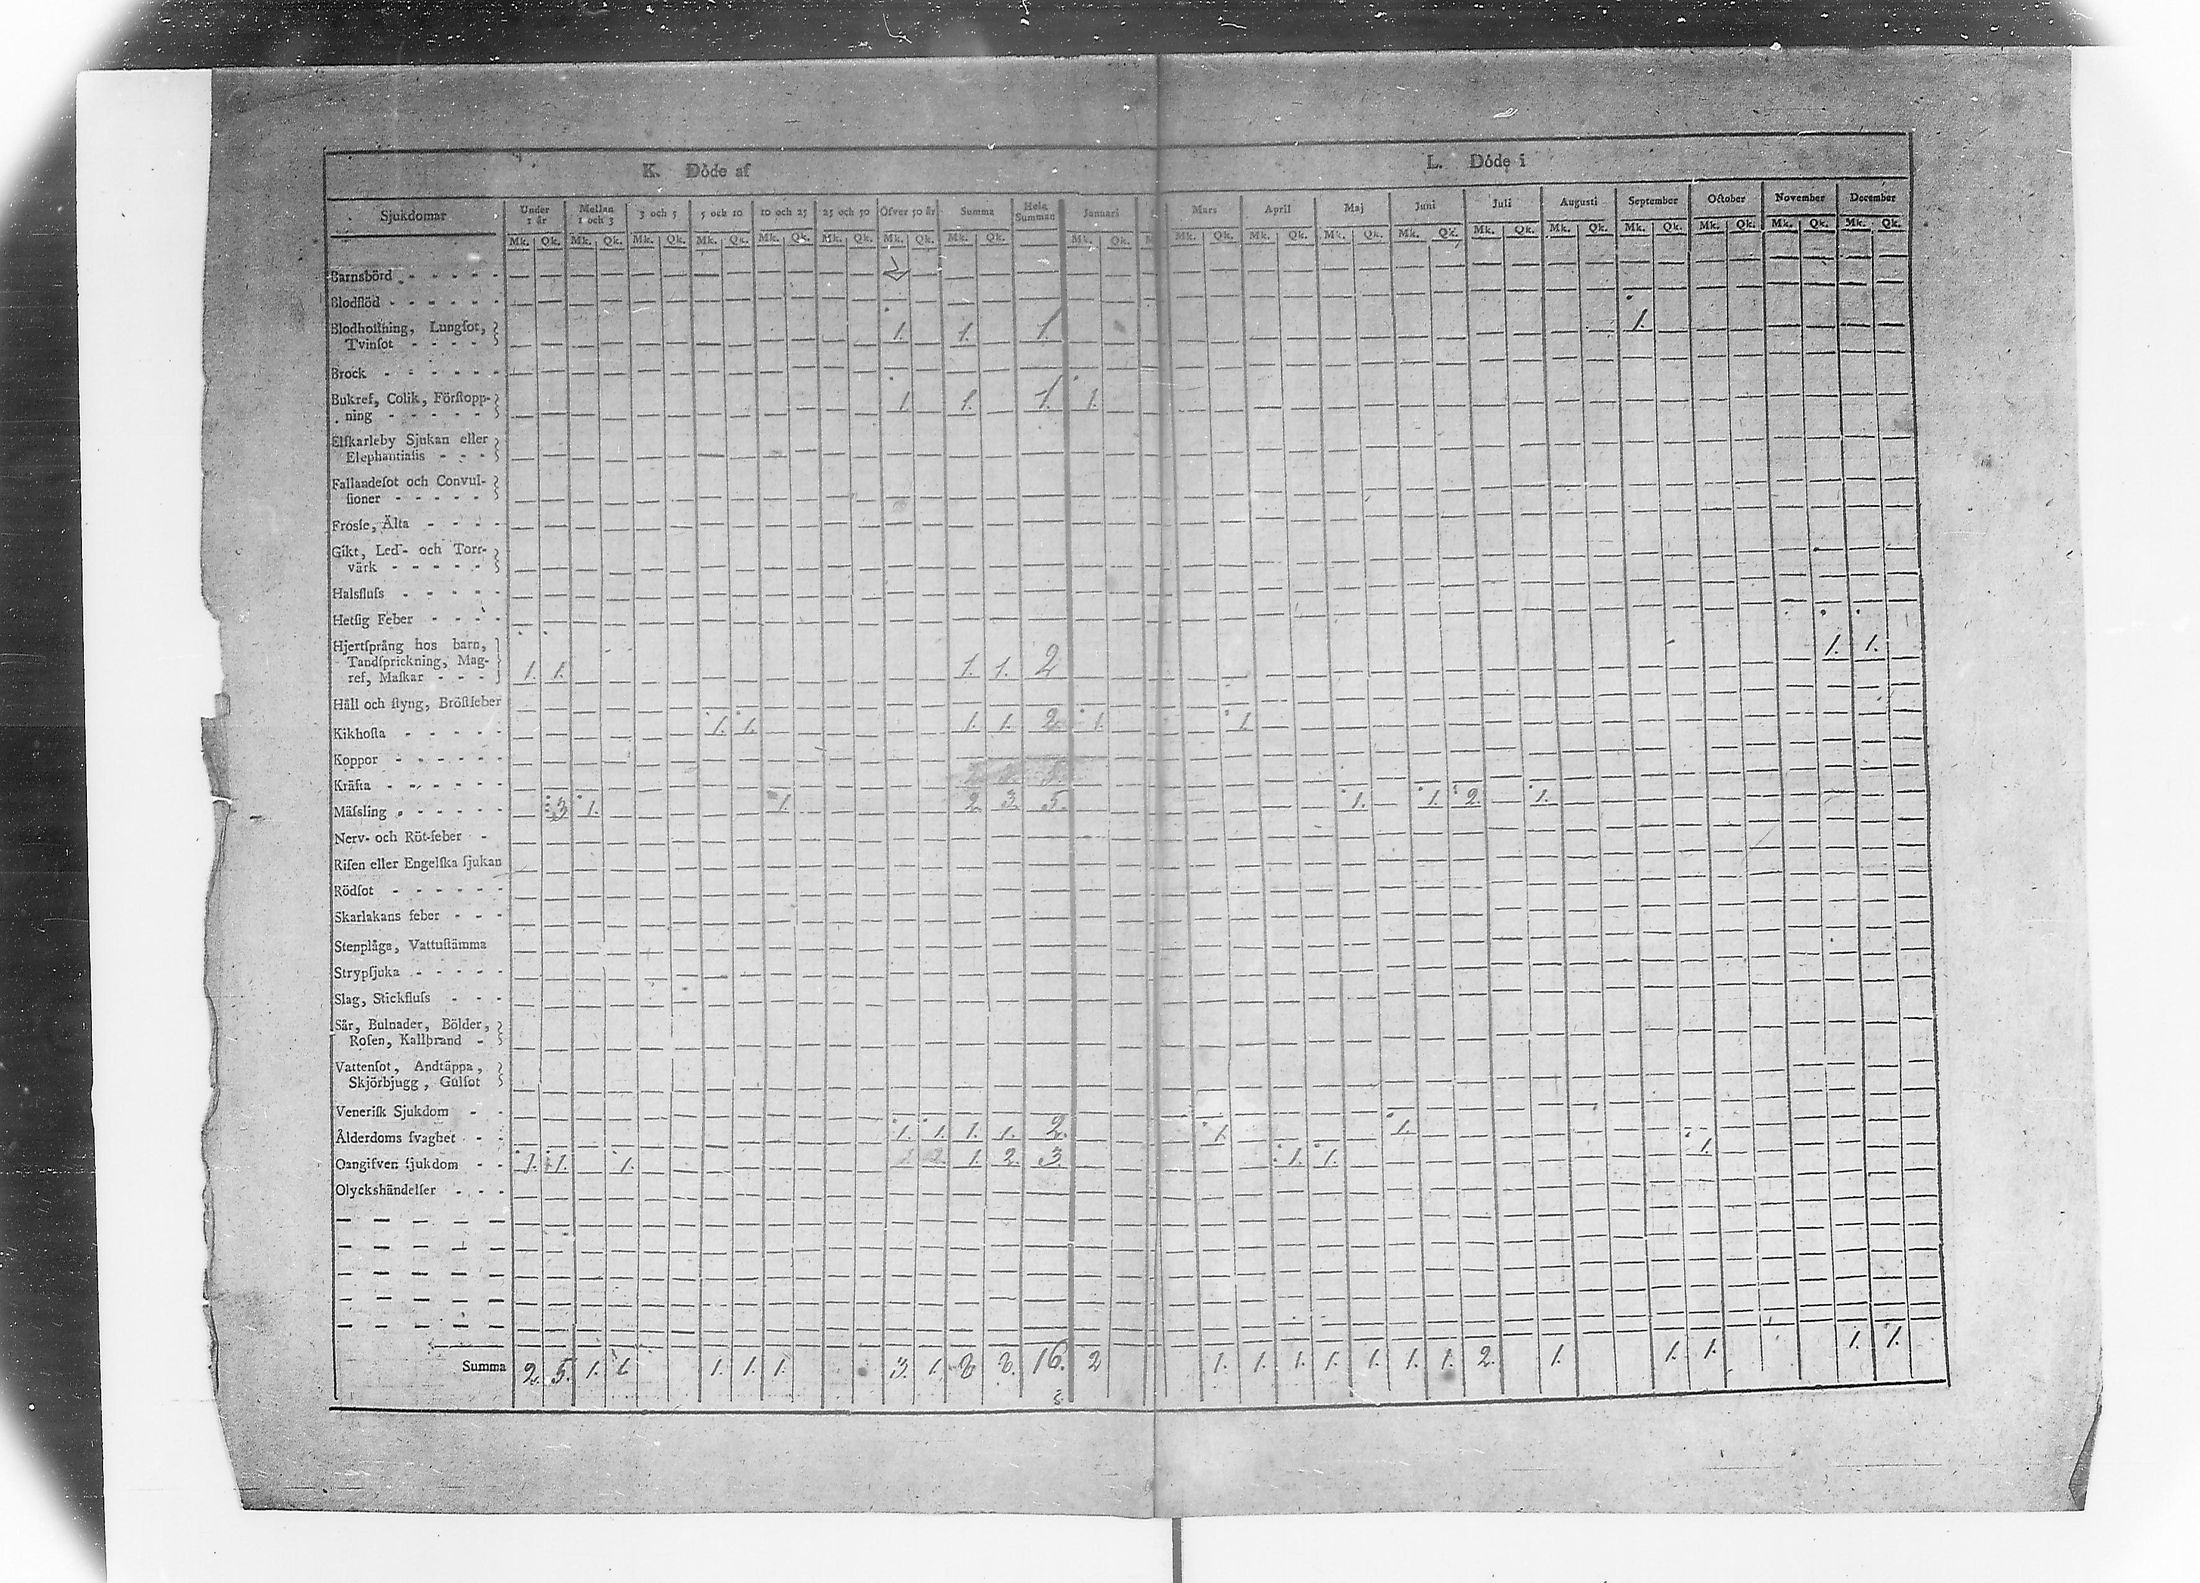 K. Döde af L. Döde i
Sjukdomar Under 1 år Mellan 1 och 3 3 och 5 5 och 10 10 och 25 25 och 50 Öfver 50 år Summa Hela Summan Januari Mars April Maj Juni Juli Augusti September October November December
Mk. Qk. Mk. Qk. Mk. Qk. Mk. Qk. Mk. Qk. Mk. Qk. Mk. Qk. Mk. Qk. Mk. Qk. M Mk. Qk. Mk. Qk. Mk. Qk. Mk. Qk. Mk. Qk. Mk. Qk. Mk. Qk. Mk. Qk. Mk. Qk. Mk. Qk.
Barnsbörd
Blodflöd
Blodhoſtning, Lungſot,
Tvinſot 1. 1. 1. 1.
Brock
Bukref, Colik, Förſtopp-
ning 1 1. 1. 1.
Elſkarleby Sjukan eller
Elephantiaſis
Fallandeſot och Convul-
ſioner
Froſſe, Älta
Gikt, Led- och Torr-
värk
Halsfluſs
Hetſig Feber
Hjertſprång hos barn,
Tandſprickning, Mag-
ref, Maſkar 1. 1. 1. 1. 2 1. 1.
Håll och ſtyng, Bröſtfeber
Kikhoſta 1. 1. 1. 1. 2 1. 1.
Koppor
Kräfta
Mäſsling 3 1. 1. 2 3. 5. 1. 1. 2. 1.
Nerv- och Röt-feber
Riſen eller Engelſka ſjukan
Rödſot
Skarlakans feber
Stenplåga, Vattuſtämma
Strypſjuka
Slag, Stickfluſs
Sår, Bulnader, Bölder,
Roſen, Kallbrand
Vattenſot, Andtäppa,
Skjörbjugg, Gulſot
Veneriſk Sjukdom
Ålderdoms ſvaghet 1. 1. 1. 1. 2. 1. 1.
Oangifven ſjukdom 1. 1. 1. 1. 2. 3 1. 1. 1.
Olyckshändelſer
Summa 2. 5. 1. 1. 1. 1. 1. 3. 1. 8 8. 16. 2 1. 1. 1. 1. 1. 1. 1. 2. 1. 1. 1. 1. 1.